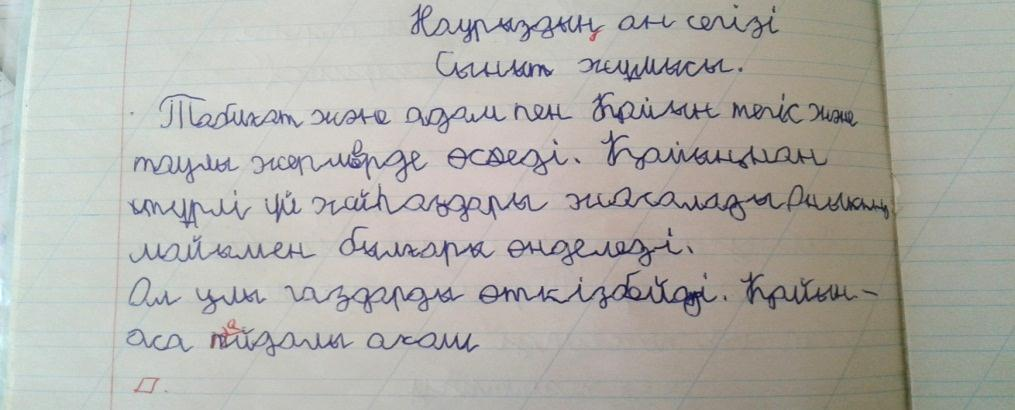 Наурыздың он сегізі
Сынып жұмысы.
Табихат және адам пен Қайың тегіс және
таулы жерлерде өседі. Қайыңнан
түрлі үй жайһаздары жасалады Оның
маймен былхары өнделеді.
Ол улы газдарды өткізбейді. Қайың-
аса пайдалы ахаш